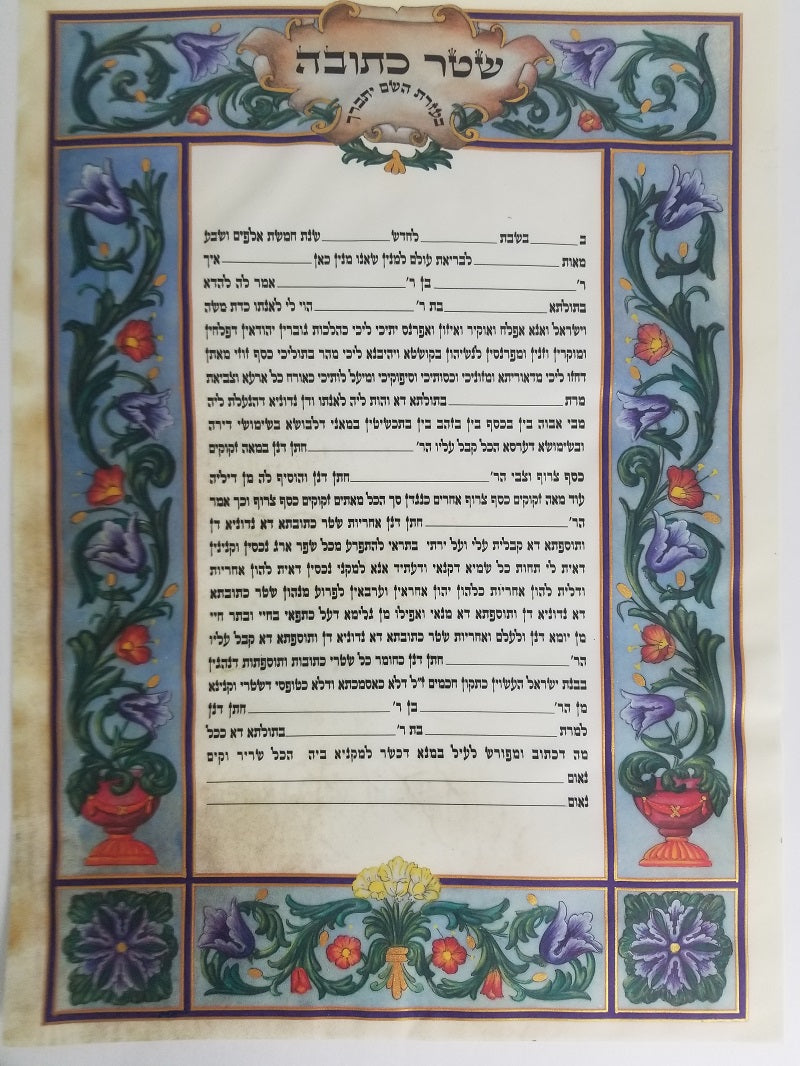 שטר כתובה
בעזרת השם יתברך
ב______בשבת__________לחדש__________שנת חמשת אלפים ושבע
מאות____________לבריאת עולם למנין שאנו מנין כאן____________איך
ר'____________בן ר'____________אמר לה להדא
בתולתא____________בת ר'____________הוי לי לאנתו כדת משה
וישראל ואנא אפלח ואוקיר ואיזון ואפרנס יתיכי ליכי כהלכות גוברין יהודאין דפלחין
ומוקרין וזנין ומפרנסין לנשיהון בקושטא ויהיבנא ליכי מהר בתוליכי כסף זוזי מאתן
דחזו ליכי מדאוריתא ומזוניכי וכסותיכי וסיפוקיכי ומיעל לותיכי כאורח כל ארעא וצביאת
מרת____________בתולתא דא והות ליה לאנתו ודן נדוניא דהנעלת ליה
מבי אבוה בין בכסף בין בזהב בין בתכשיטין במאני דלבושא בשימושי דירה
ובשימושא דערסא הכל קבל עליו הר'____________חתן דנן במאה זקוקים
כסף צרוף וצבי הר'____________חתן דנן והוסיף לה מן דיליה
עוד מאה זקוקים כסף צרוף אחרים כנגדן סך הכל מאתים זקוקים כסף צרוף וכך אמר
הר'____________חתן דנן אחריות שטר כתובתא דא נדוניא דן
ותוספתא דא קבלית עלי ועל ירתי בתראי להתפרע מכל שפר ארג נכסין וקנינין
דאית לי תחות כל שמיא דקנאי ודעתיד אנא למקני נכסין דאית להון אחריות
ודלית להון אחריות כלהון יהון אחראין וערבאין לפרוע מנהון שטר כתובתא
דא נדוניא דן ותוספתא דא מנאי ואפילו מן גלימא דעל כתפאי בחיי ובתר חיי
מן יומא דנן ולעלם ואחריות שטר כתובתא דא נדוניא דן ותוספתא דא קבל עליו
הר'____________חתן דנן כחומר כל שטרי כתובות ותוספתות דנהגין
בבנת ישראל העשויין כתקון חכמים ז"ל דלא כאסמכתא ודלא כטופסי דשטרי וקנינא
מן הר'____________בן ר'____________חתן דנן
למרת____________בת ר'____________בתולתא דא ככל
מה דכתוב ומפורש לעיל במנא דכשר למקניא ביה הכל שריר וקים
נאום____________
נאום____________